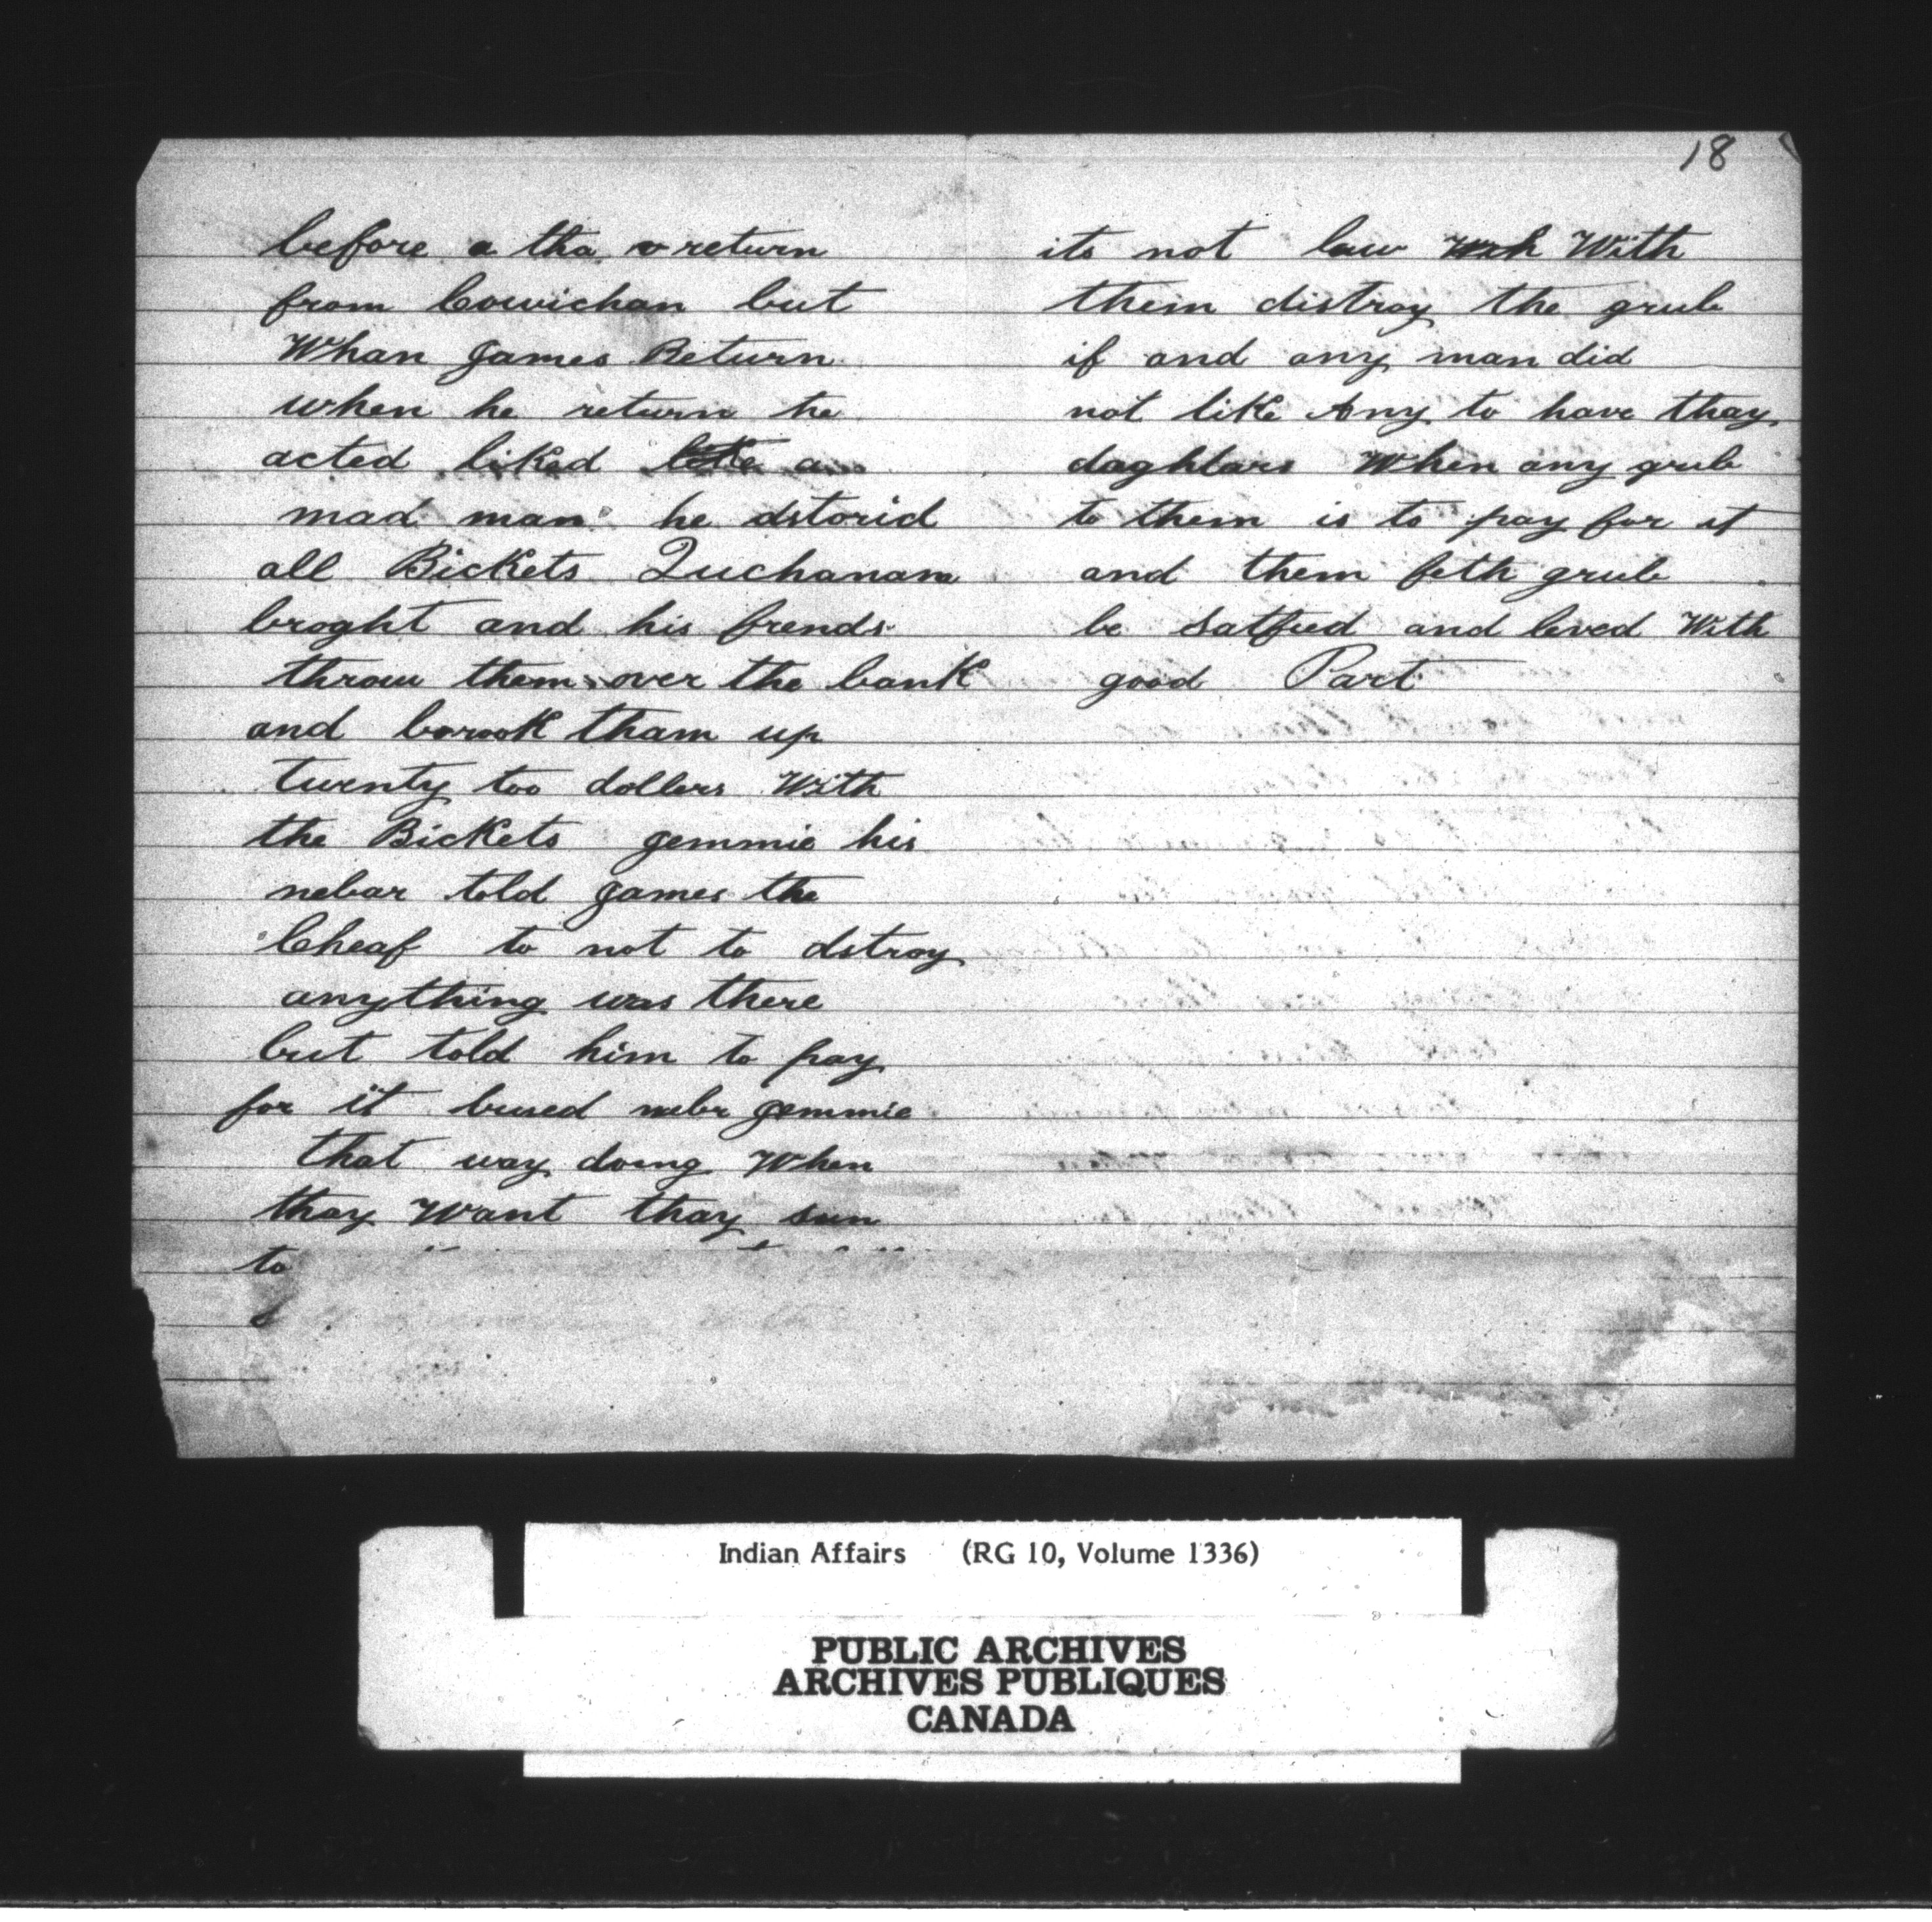 18
before a tha return
from Cowichan but
Whan James Return
when he return he
acted liked like a
mad man he dstorid
all Bickets Quchanan
broght and his frends
throw them over the bank
and borook tham up
twenty too dollers With
the Bickets Jemmie his
nebar told James the
Cheaf to not to dstroy
anything was there
but told him to pay
for it nebr Jemmie
that way doing When
thay Want thay sun
to
its not law With
them distroy the grub
if and any man did
not like Any to have thay
daghtars When any grub
to them is to pay for it
and them feth grub
be satfied and lived With
good Part
Indian Affairs (RG 10, Volume 1336)
PUBLIC ARCHIVES
ARCHIVES PUBLIQUES
CANADA